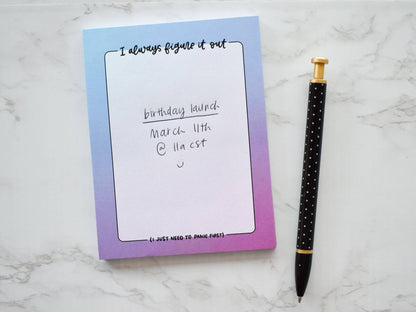 I always figure it out
birthday launch
march 11th
@ 11a cst
(I JUST NEED TO PANIC FIRST)